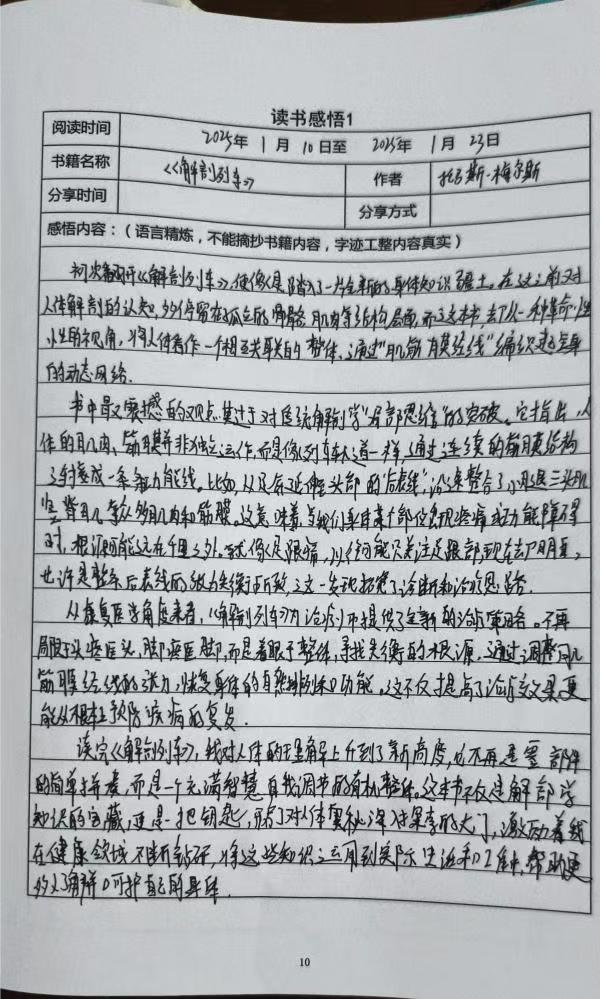 读书感悟1
阅读时间 2025年 1月 10日至 2025年 1月 23日
书籍名称 《解剖列车》 作者 托马斯·梅尔斯
分享时间 分享方式
感悟内容：（语言精炼，不能摘抄书籍内容，字迹工整内容真实）
初次翻开《解剖列车》，便像是踏入了一片全新的身体知识疆土。在这之前对
人体解剖的认知，多停留在孤立的骨骼、肌肉等结构层面，而这本书，却以一种革命性
性的视角，将人体看作一个相互关联的整体，通过“肌筋膜经线”编织起全身
的动态网络.
书中最震撼的观点莫过于对传统解剖学“局部思维”的突破。它指出，人
体的肌肉、筋膜并非独立运作，而是像列车轨道一样，通过连续的筋膜结构
连接成一条条力能线。比如，从足底延伸至头部的“后表线”，沿途整合了小腿三头肌
竖脊肌等众多肌肉和筋膜。这意味着，当我们某个部位出现疼痛或功能障碍
时，根源可能远在千里之外。就像是跟痛，以往可能只关注足跟部，现在却明白，
也许是整条后表线的张力失衡所致，这一发现拓宽了诊断和治疗思路.
从康复医学角度来看，《解剖列车》为治疗师提供了全新的治疗策略。不再
局限于头痛医头，脚痛医脚，而是着眼于整体，寻找失衡的根源，通过调整肌
筋膜经线的张力，恢复身体的自然排列和功能。这不仅提高了治疗效果，更
能从根本上预防疾病的复发.
读完《解剖列车》，我对人体的理解上升到了新高度，它不再是零部件
的简单拼凑，而是一个充满智慧、自我调节的有机整体。这本书不仅是解剖学
知识的宝藏，更是一把钥匙，开启了对人体奥秘深度探索的大门，激励着我
在健康领域不断钻研，将这些知识运用到实际生活和工作中，帮助更
多人了解呵护自己的身体.
10